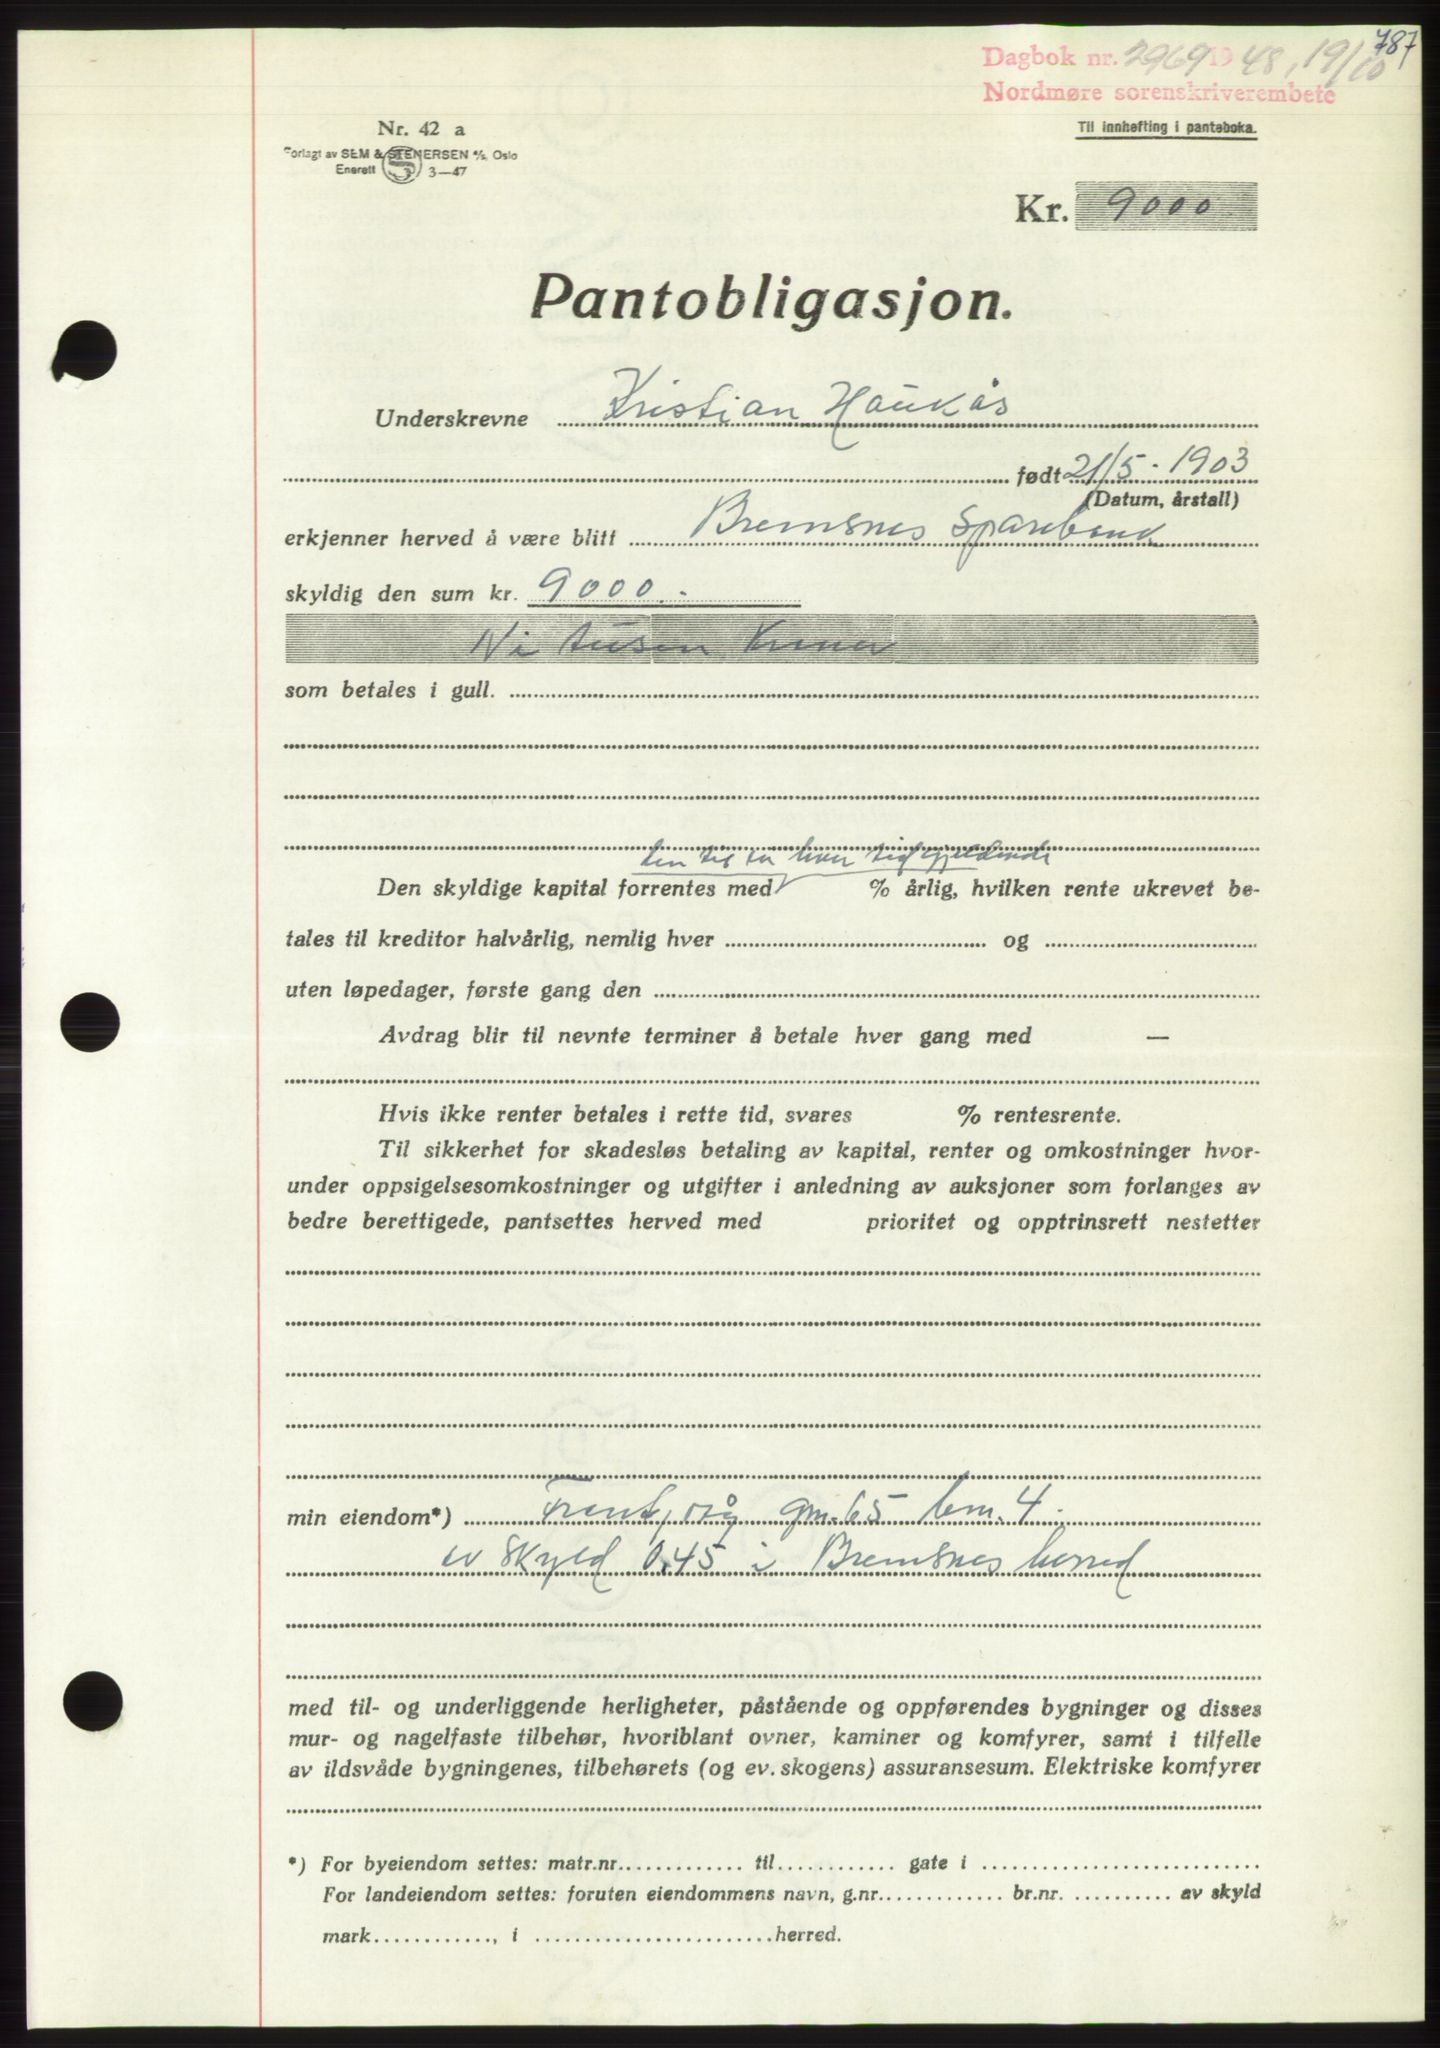 787
Dagbok nr. 2969 1948, 19/10
Nordmøre sorenskriverembete
Nr. 42 a
Til innhefting i panteboka.
Forlagt av SEM & STENERSEN A/S, Oslo
Enerett 3—47
Kr. 9000
Pantobligasjon.
Underskrevne Kristian Haukås
født 21/5 - 1903
(Datum, årstall)
erkjenner herved å være blitt Bremsnes Sparebank
skyldig den sum kr. 9000.-
Ni tusen Kroner
som betales i gull.
den til en hver tid gjeldende
Den skyldige kapital forrentes med % årlig, hvilken rente ukrevet be-
tales til kreditor halvårlig, nemlig hver og
uten løpedager, første gang den
Avdrag blir til nevnte terminer å betale hver gang med —
Hvis ikke renter betales i rette tid, svares % rentesrente.
Til sikkerhet for skadesløs betaling av kapital, renter og omkostninger hvor-
under oppsigelsesomkostninger og utgifter i anledning av auksjoner som forlanges av
bedre berettigede, pantsettes herved med prioritet og opptrinsrett nestetter
min eiendom*) gnr. 65 bnr. 4.
av skyld 0,45 i Bremsnes herred
med til- og underliggende herligheter, påstående og oppførendes bygninger og disses
mur- og nagelfaste tilbehør, hvoriblant ovner, kaminer og komfyrer, samt i tilfelle
av ildsvåde bygningenes, tilbehørets (og ev. skogens) assuransesum. Elektriske komfyrer
*) For byeiendom settes: matr.nr............. til............ gate i ............................
For landeiendom settes: foruten eiendommens navn, g.nr............. br.nr. .......... av skyld
mark............, i ........................herred.